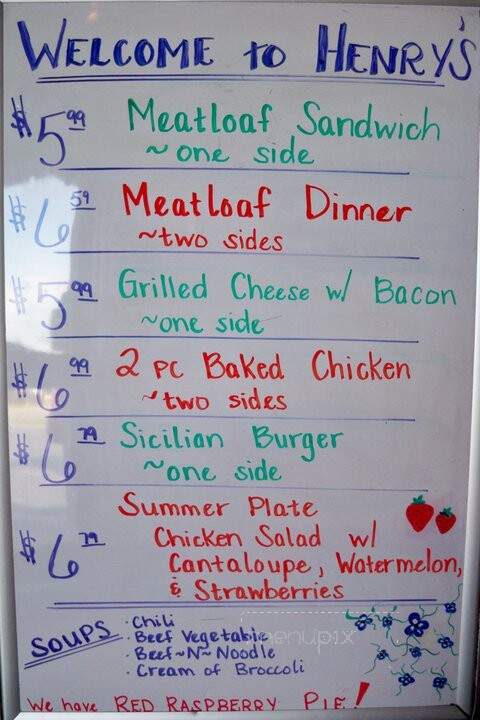 WELCOME to HENRY'S
$5.99 Meatloaf Sandwich
~one side
$6.59 Meatloaf Dinner
~two sides
$5.99 Grilled Cheese w/ Bacon
~one side
$6.99 2 PC Baked Chicken
~two sides
$6.79 Sicilian Burger
~one side
Summer Plate
$6.79 Chicken Salad w/
Cantaloupe, Watermelon,
& Strawberries
SOUPS
· Chili
· Beef Vegetable
· Beef~N~Noodle
· Cream of Broccoli
menupix
We have RED RASPBERRY PIE!